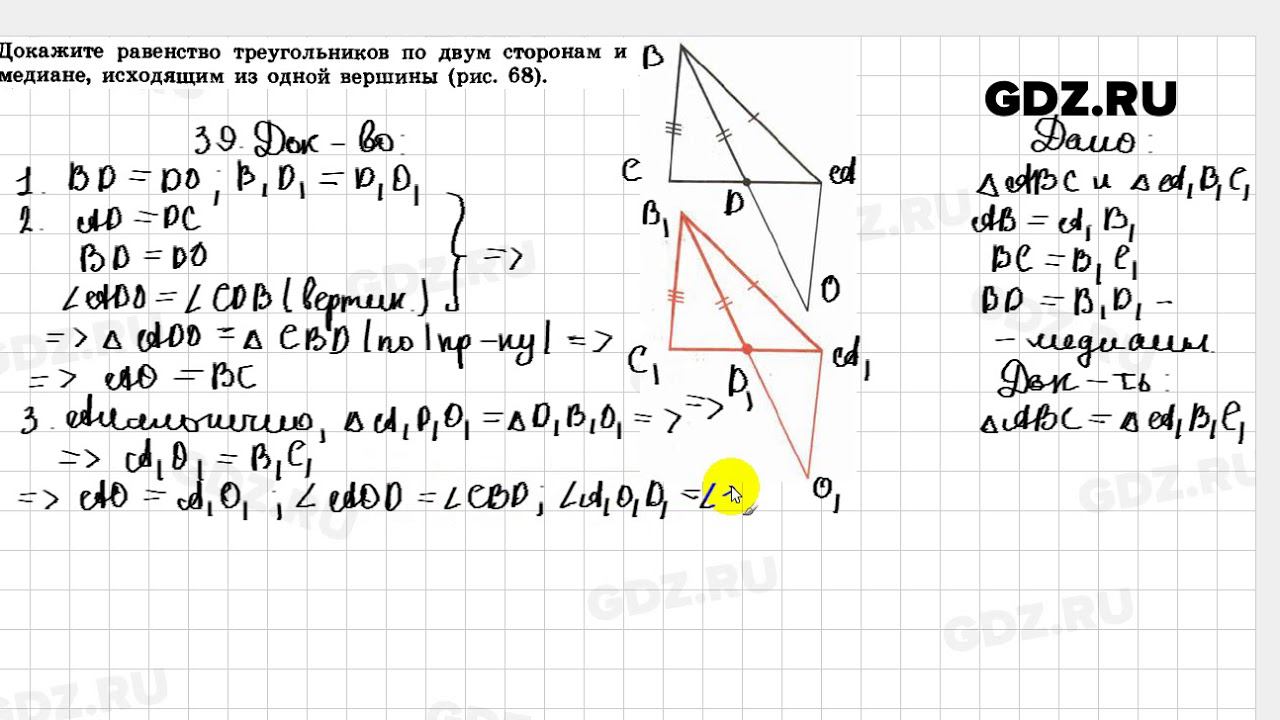 Докажите равенство треугольников по двум сторонам и
медиане, исходящим из одной вершины (рис. 68).
39. Док-во:
1. BD = DO ; B₁D₁ = D₁O₁
2. AD = DC
BD = DO
∠ADO = ∠CDB (вертик.)
=>
=> △ADO = △CBD |по I пр-ку| =>
=> AO = BC
3. Аналогично, △A₁D₁O₁ = △D₁B₁D₁ => =>
=> A₁O₁ = B₁C₁
=> AO = A₁O₁ ; ∠AOD = ∠CBD ; ∠A₁O₁D₁ = ∠
B
C
D
A
O
B₁
C₁
D₁
A₁
O₁
GDZ.RU
Дано:
△ABC и △A₁B₁C₁
AB = A₁B₁
BC = B₁C₁
BD = B₁D₁ -
- медианы.
Док-ть:
△ABC = △A₁B₁C₁
GDZ.RU
GDZ.RU
GDZ.RU
GDZ.RU
GDZ.RU